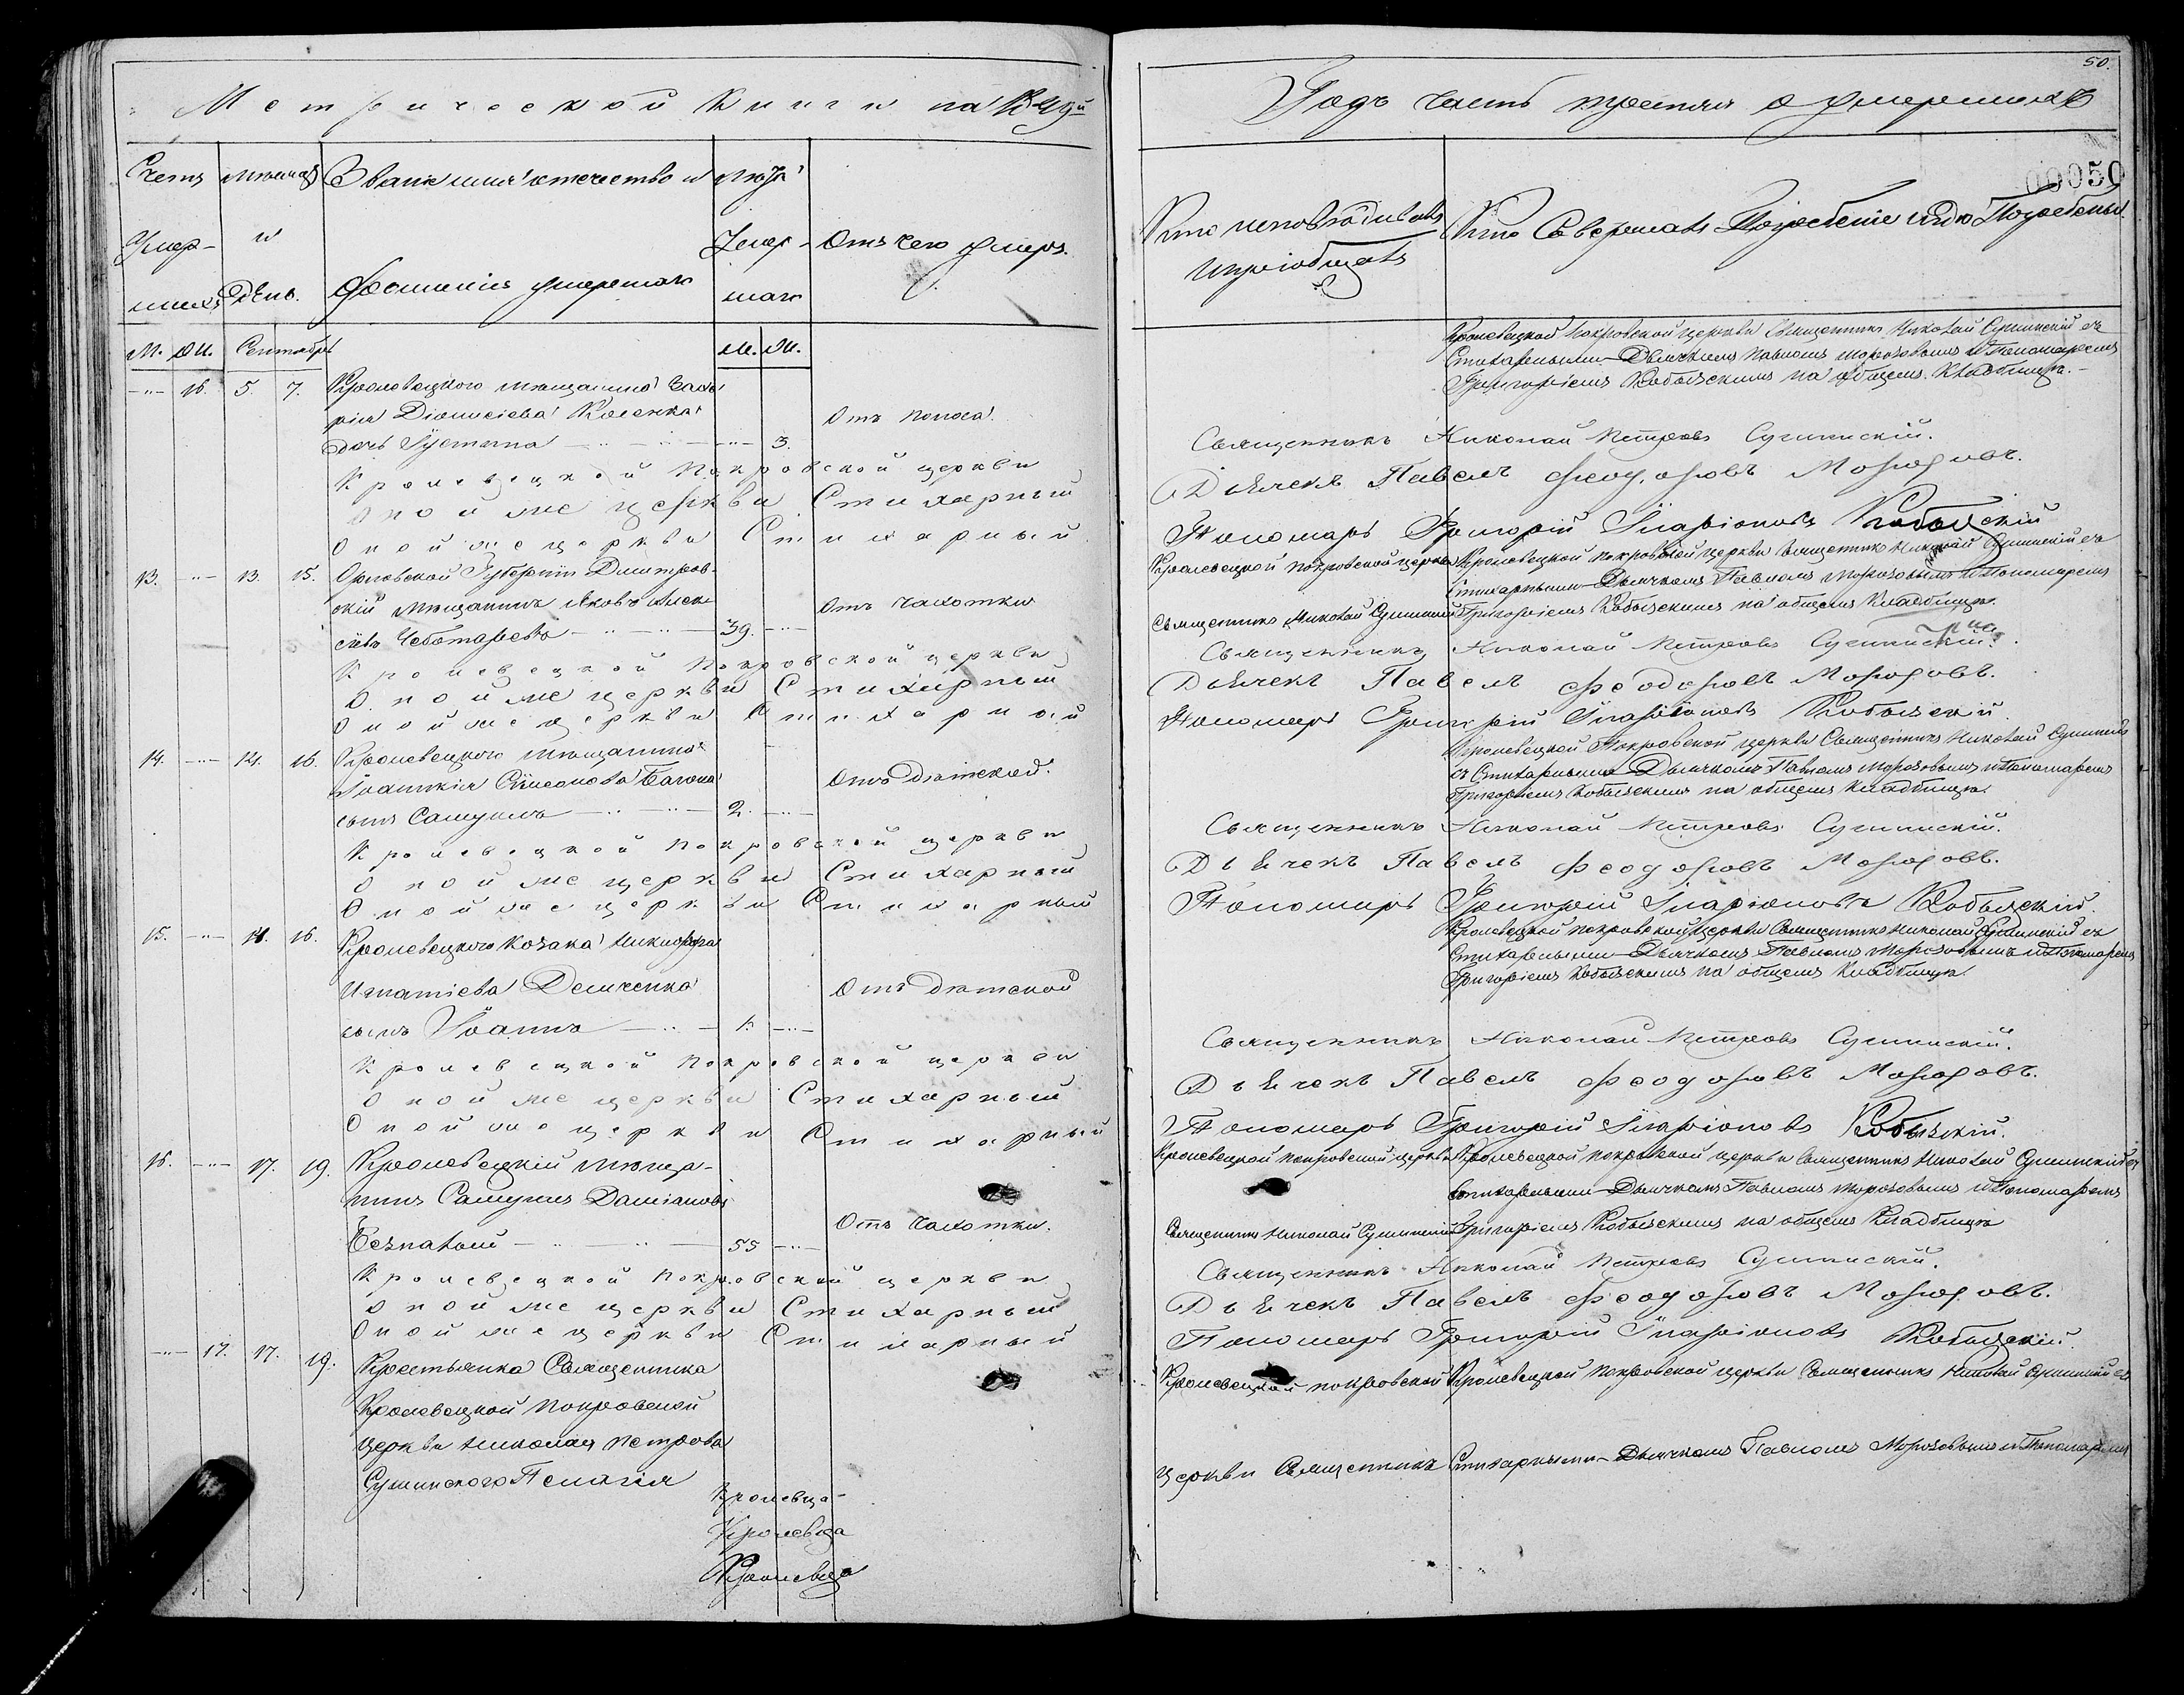 Метрической Книги на
Годъ часть третия о умершихъ
50.
00050
Счетъ
Умер-
шихъ
Мѣсяцъ
и
День.
Званіе имя отчество и
фамилія умершаго
Лѣта
Умер-
шаго
Отъ чего умеръ.
Кто исповѣдывалъ
и пріобщалъ
Кто Совершалъ Погребеніе и гдѣ Погребены
М. Ж. Сентябрь
М. Ж.
16. 5. 7. Кролевецкого мѣщанина
Діонисіева
дочь Іустина 3.
Отъ поноса
Кролевецкой Покровской церкви Священникъ Николай Сушинскій съ
Стихарными Дьячкомъ Павломъ Морозовымъ и Пономаремъ
Григоріемъ Кобызскимъ на общемъ кладбищѣ.
Кролевецкой Покровской церкви Священникъ Николай Петровъ Сушинскій.
Оной же церкви Стихарный Дьячекъ Павелъ Феодоровъ Морозовъ.
Оной же церкви Стихарный Пономарь Григорій Иларіоновъ Кобызскій
13. 13. 15. Орловской Губерніи Дмитров-
скій мѣщанинъ Яковъ Алексѣ
евъ Чеботаревъ 39.
Отъ чахотки
Кролевецкой Покровской церкви
Священникъ Николай Сушинскій
Кролевецкой Покровской церкви Священникъ Николай Сушинскій съ
Стихарными Дьячкомъ Павломъ Морозовымъ и Пономаремъ
Григоріемъ Кобызскимъ на общемъ кладбищѣ.
Кролевецкой Покровской церкви Священникъ Николай Петровъ Сушинскій.
Оной же церкви Стихарный Дьячекъ Павелъ Феодоровъ Морозовъ.
Оной же церкви Стихарный Пономарь Григорій Иларіоновъ Кобызскій.
14. 14. 16. Кролевецкого мѣщанина
Іоаникія Сімеонова
сынъ Самуилъ 2.
Отъ Дѣтской.
Кролевецкой Покровской церкви Священникъ Николай Сушинскій
съ Стихарными Дьячкомъ Павломъ Морозовымъ и Пономаремъ
Григоріемъ Кобызскимъ на общемъ кладбищѣ.
Кролевецкой Покровской церкви Священникъ Николай Петровъ Сушинскій.
Оной же церкви Стихарный Дьячекъ Павелъ Феодоровъ Морозовъ.
Оной же церкви Стихарный Пономарь Григорій Иларіоновъ Кобызскій.
15. 14. 16. Кролевецкого Козака Никифора
Игнатіева Демченка
сынъ Іоаннъ 1.
Отъ Дѣтской
Кролевецкой Покровской церкви Священникъ Николай Сушинскій съ
Стихарными Дьячкомъ Павломъ Морозовымъ и Пономаремъ
Григоріемъ Кобызскимъ на общемъ кладбищѣ.
Кролевецкой Покровской церкви Священникъ Николай Петровъ Сушинскій.
Оной же церкви Стихарный Дьячекъ Павелъ Феодоровъ Морозовъ.
Оной же церкви Стихарный Пономарь Григорій Иларіоновъ Кобызскій.
16. 17. 19. Кролевецкій мѣща-
нинъ Самуилъ Даміановъ
Безпалый 55
Отъ Чахотки.
Кролевецкой Покровской церкви
Священникъ Николай Сушинскій
Кролевецкой Покровской церкви Священникъ Николай Сушинскій съ
Стихарными Дьячкомъ Павломъ Морозовымъ и Пономаремъ
Григоріемъ Кобызскимъ на общемъ Кладбищѣ
Кролевецкой Покровской церкви Священникъ Николай Петровъ Сушинскій.
Оной же церкви Стихарный Дьячекъ Павелъ Феодоровъ Морозовъ.
Оной же церкви Стихарный Пономарь Григорій Иларіоновъ Кобызскій.
17. 17. 19. Крестьянка Священника
Кролевецкой Покровской
церкви Николая Петрова
Сушинского Пелагія
Кролевецкой Покровской
церкви Священникъ
Кролевецкой Покровской церкви Священникъ Николай Сушинскій съ
Стихарными Дьячкомъ Павломъ Морозовымъ и Пономаремъ
Кролевца
Кролевца
Кролевца